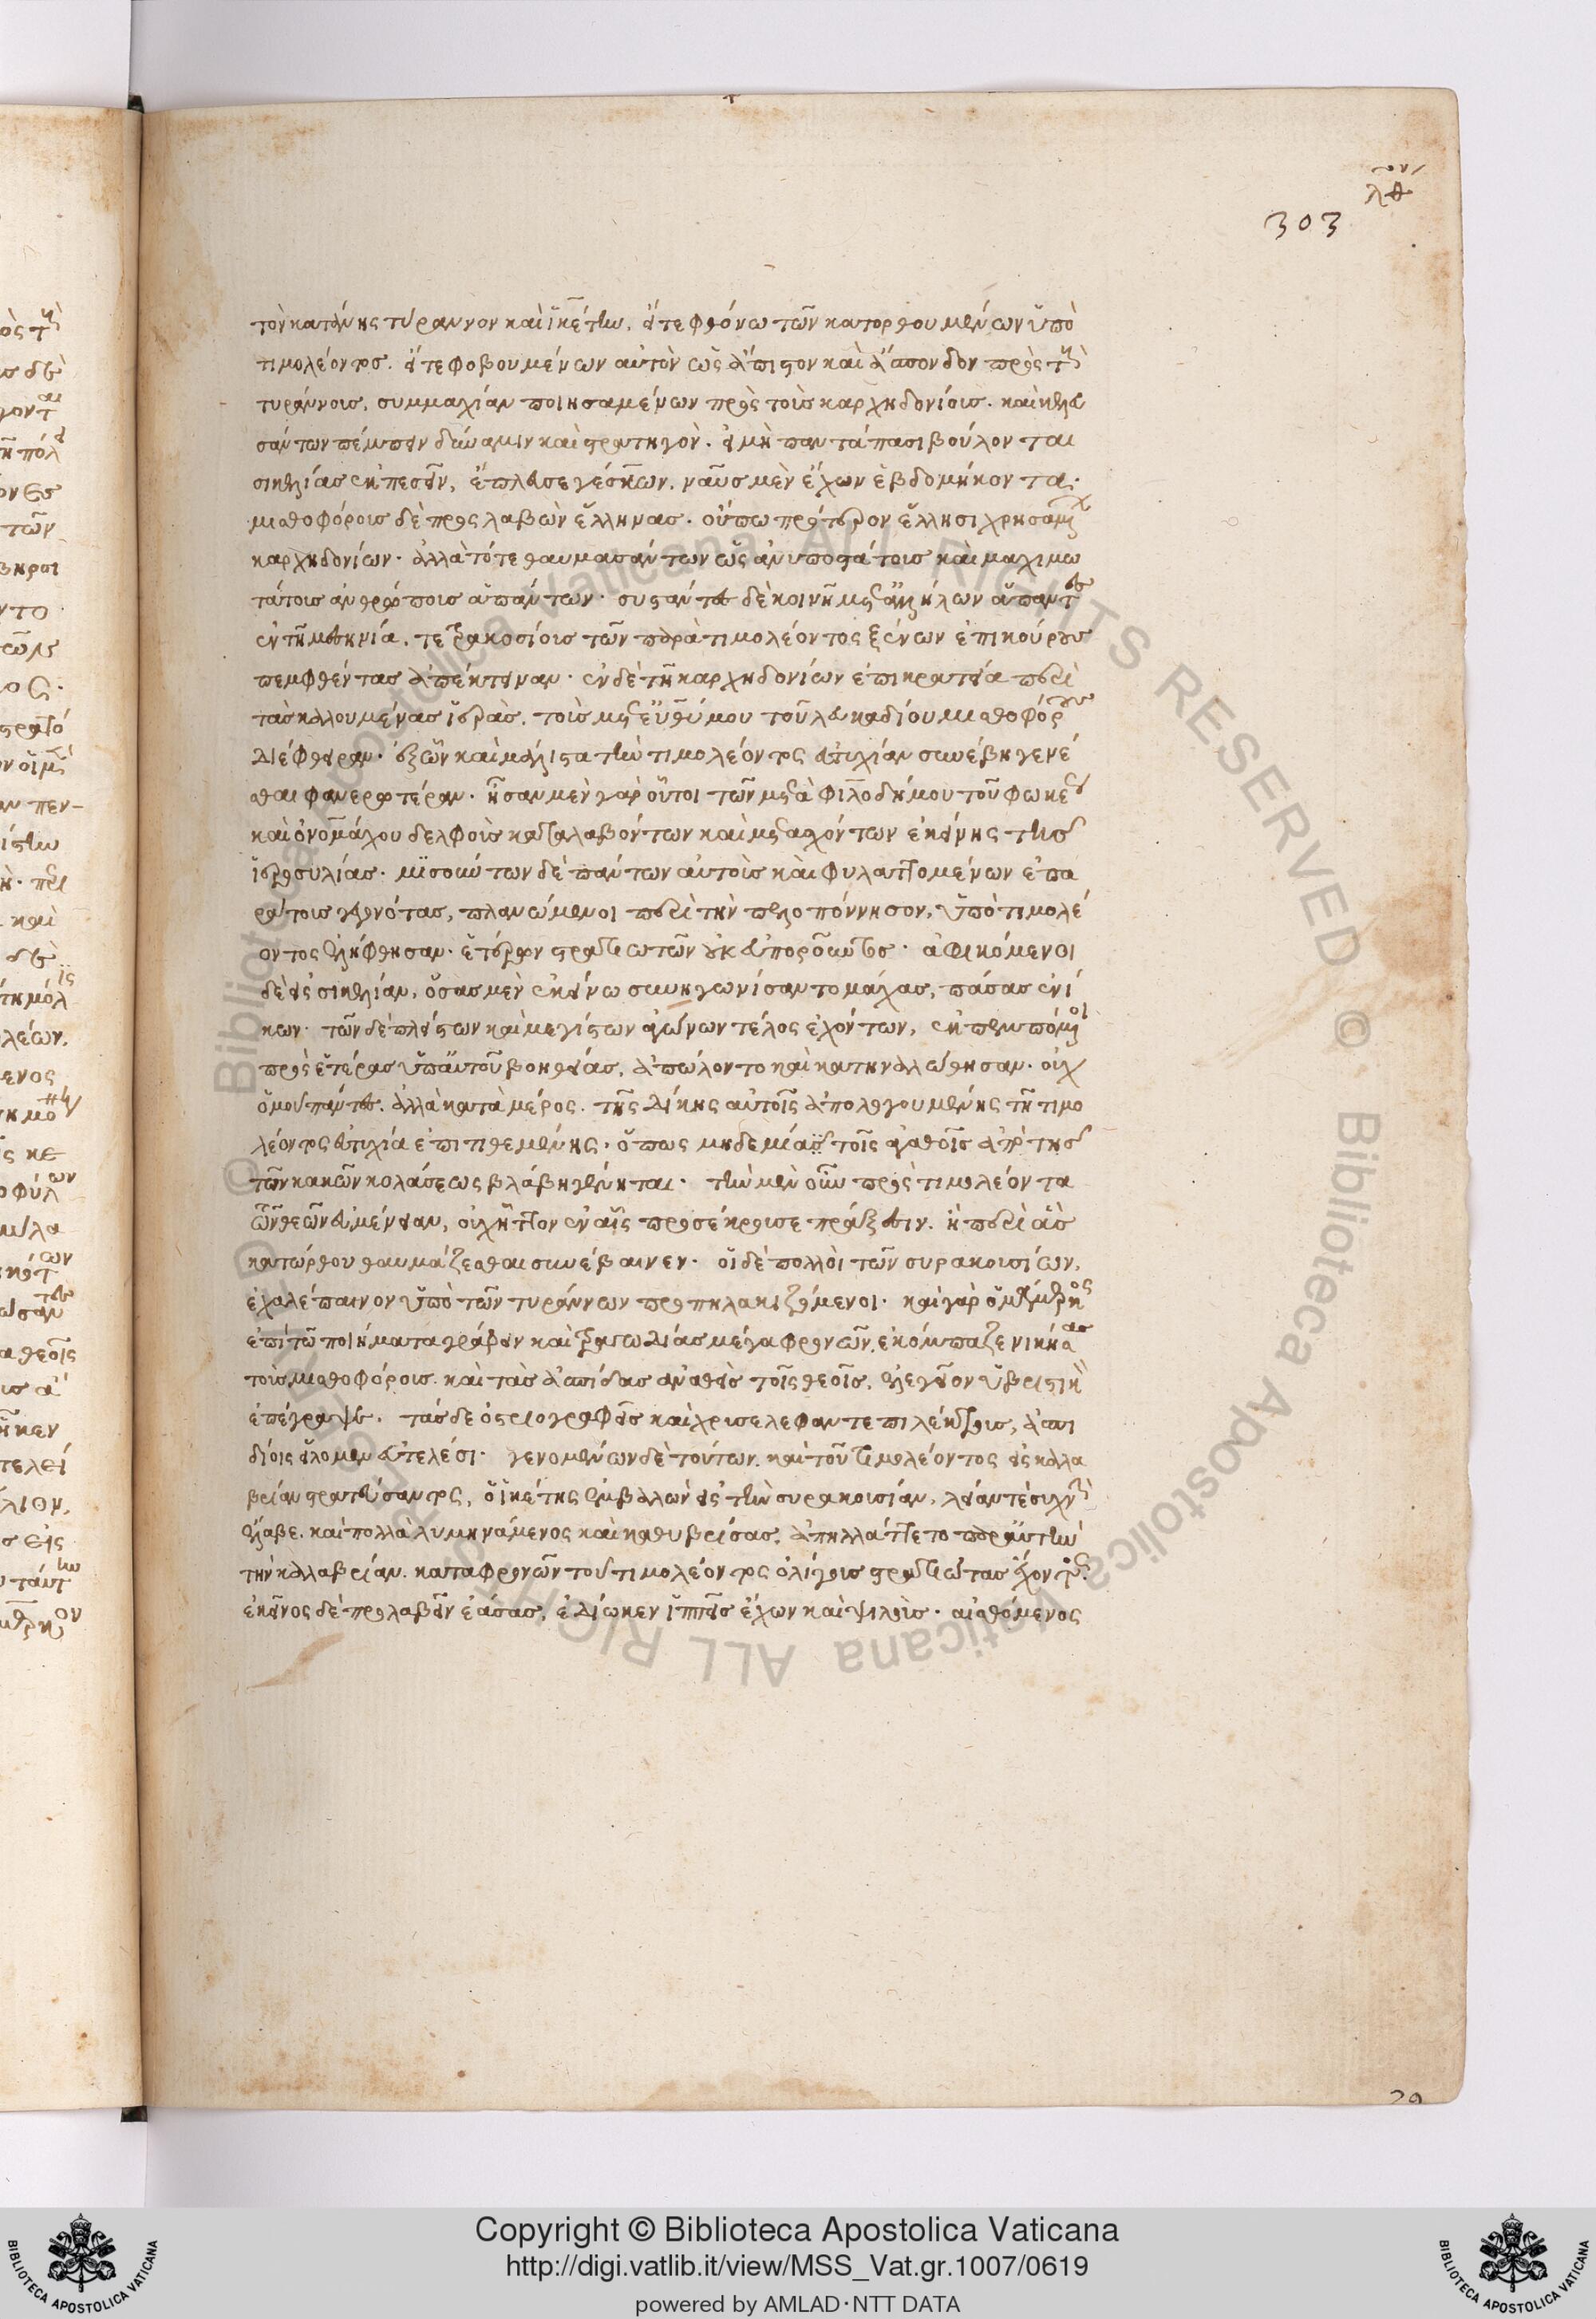 λθ
303
τὸν κατάνης τύραννον καὶ ἱκέτην, εἴτε φθόνω τῶν κατορθουμένων ὑπὸ
τιμολέοντος. εἴτε φοβουμένων αὐτὸν ὡς ἄπιστον καὶ ἄσπονδον πρὸς τοὺς
τυράννους, συμμαχίαν ποιησαμένων πρὸς τοὺς καρχηδονίους. καὶ κελευ
σάντων πέμπειν δύναμιν καὶ στρατηγὸν. εἰ μὴ παντάπασι βούλονται
σικελίας ἐκπεσεῖν, ἔπλευσε γέσκων. ναῦς μὲν ἔχων ἑβδομήκοντα.
μισθοφόρους δὲ προσλαβὼν ἕλληνας. οὔπω πρότερον ἕλλησι χρησαμένων
καρχηδονίων. ἀλλὰ τότε θαυμασάντων ὡς ἀνυποστάτους καὶ μαχιμω
τάτους ἀνθρώπους ἁπάντων. συστάντες δὲ κοινῇ μετ' ἀλλήλων ἅπαντες
ἐν τῇ μεσηνία, τετρακοσίους τῶν παρὰ τιμολέοντος ξένων ἐπικούρους
πεμφθέντας ἀπέκτειναν. ἐν δὲ τῇ καρχηδονίων ἐπικρατεία περὶ
τὰς καλουμένας ἱερὰς, τοὺς μετ' εὐθύμου τοῦ λευκαδίου μισθοφόρους
διέφθειραν. ἐξ ὧν καὶ μάλιστα τὴν τιμολέοντος εὐτυχίαν συνέβη γενέ
σθαι φανερωτέραν. ἦσαν μὲν γὰρ οὗτοι τῶν μετὰ φιλοδήμου τοῦ φωκέως
καὶ ὀνομάχου δελφοὺς καταλαβόντων καὶ μετασχόντων ἐκείνης τῆς
ἱεροσυλίας. μισούντων δὲ πάντων αὐτοὺς καὶ φυλαττομένων ἐπα
ράτους γεγονότας, πλανώμενοι περὶ τὴν πελοπόννησον, ὑπὸ τιμολέ
οντος ἐλήφθησαν. ἑτέρων στρατιωτῶν οὐκ εὐποροῦντες. ἀφικόμενοι
δὲ εἰς σικελίαν, ὅσας μὲν ἐκείνω συνηγωνίσαντο μάχας, πάσας ἐνί
κων. τῶν δὲ πλείστων καὶ μεγίστων ἀγώνων τέλος ἐχόντων, ἐκπεμπόμενοι
πρὸς ἑτέρας ὑπ' αὐτοῦ βοηθείας, ἀπώλοντο καὶ κατηναλώθησαν. οὐχ
ὁμοῦ πάντες. ἀλλὰ κατὰ μέρος. τῆς δίκης αὐτοῖς ἀπολογουμένης τῇ τιμο
λέοντος εὐτυχία ἐπιτιθεμένης. ὅπως μηδεμία τοῖς ἀγαθοῖς ἀπὸ τῆς
τῶν κακῶν κολάσεως βλάβη γένηται. τὴν μὲν οὖν πρὸς τιμολέοντα
τῶν θεῶν εὐμένειαν, οὐχ ἧττον ἐν αἷς προσέκρουσε πράξεσιν. ἢ περὶ ἃς
κατώρθου θαυμάζεσθαι συνέβαινεν. οἱ δὲ πολλοὶ τῶν συρακουσίων,
ἐχαλέπαινον ὑπὸ τῶν τυράννων προπηλακιζόμενοι. καὶ γὰρ ὁ μάμερκος
ἐπὶ τῷ ποιήματα γράφειν καὶ τραγωδίας μέγα φρονῶν, ἐκόμπαζε νικήσας
τοὺς μισθοφόρους. καὶ τὰς ἀσπίδας ἀναθεὶς τοῖς θεοῖς, ἐλεγεῖον ὑβριστικὸν
ἐπέγραψε. τάσδε ὀστριογραφεῖς καὶ χρυσελεφαντεπιλέκτρους, ἀσπι
δίοις εἵλομεν εὐτελέσι. γενομένων δὲ τούτων. καὶ τοῦ τιμολέοντος εἰς καλα
βρίαν στρατεύσαντος, ὁ ἱκέτης ἐμβαλὼν εἰς τὴν συρακουσίαν, λείαν τε συχνὴν
ἔλαβε. καὶ πολλὰ λυμηνάμενος καὶ καθυβρίσας, ἀπηλλάττετο παρ' αὐτὴν
τὴν καλαβρίαν. καταφρονῶν τοῦ τιμολέοντος ὀλίγους στρατιώτας ἔχοντος.
ἐκεῖνος δὲ προλαβεῖν ἐάσας, ἐδίωκεν ἱππεῖς ἔχων καὶ ψιλοὺς. αἰσθόμενος
Copyright © Biblioteca Apostolica Vaticana
http://digi.vatlib.it/view/MSS_Vat.gr.1007/0619
powered by AMLAD·NTT DATA